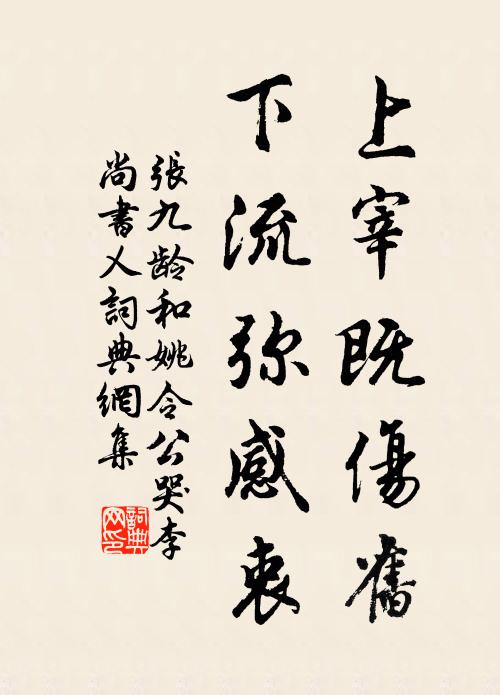 上宰既傷舊
下流弥感衷
張九龄和姚令公哭李
尚書乂詞典網集
詞典网印